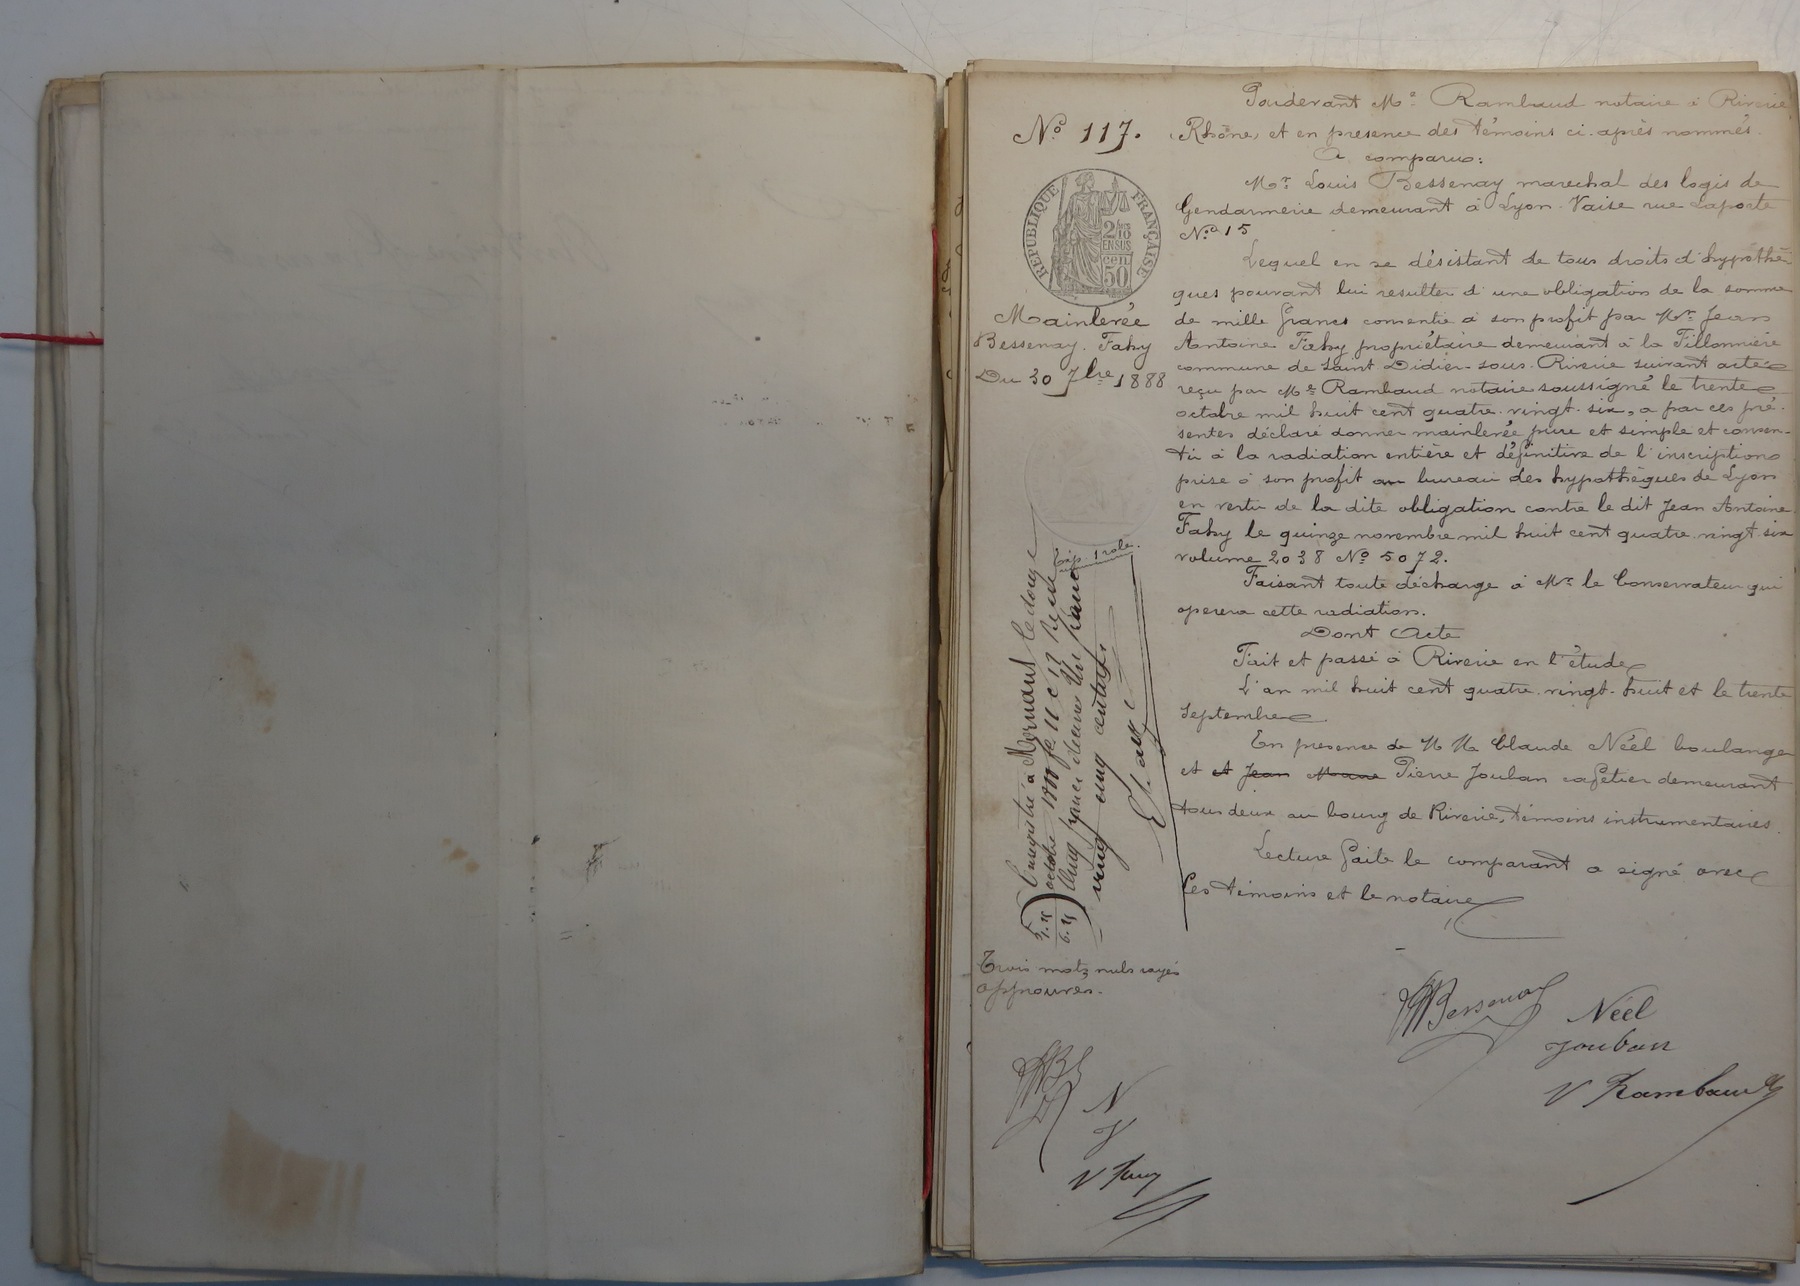 Pardevant Me Rambaud notaire à Riverie
(Rhône) et en presence des témoins ci-après nommés.
A comparu:
Mr Louis Bessenay marechal des logis de
Gendarmerie demeurant à Lyon-Vaise rue Laporte
No 15
Lequel en se désistant de tous droits d'hypothè
ques pouvant lui resulter d'une obligation de la somme
de mille francs consentie à son profit par Mr Jean
Antoine Fahy propriétaire demeurant à la Fillonnière
commune de Saint Didier-sous-Riverie suivant acte
reçu par Me Rambaud notaire soussigné le trente
octobre mil huit cent quatre-vingt-six, a par ces pré-
sentes déclaré donner mainlevée pure et simple et consen-
tir à la radiation entière et définitive de l'inscription
prise à son profit au bureau des hypothèques de Lyon
en vertu de la dite obligation contre le dit Jean Antoine
Fahy le quinze novembre mil huit cent quatre-vingt-six
volume 2038 No 5072.
Faisant toute décharge à Mr le Conservateur qui
operera cette radiation.
Dont Acte
Fait et passé à Riverie en l'étude
L'an mil huit cent quatre-vingt-huit et le trente
Septembre
En presence de MM Claude Néel boulanger
et et Jean Marie Pierre Jouban cafetier demeurant
tous deux au bourg de Riverie, témoins instrumentaires.
Lecture faite le comparant a signé avec
les témoins et le notaire
Bessenay
Néel
Jouban
V Rambaud
No 117.
RÉPUBLIQUE FRANÇAISE
2/10 EN SUS
50 cen
Mainlevée
Bessenay-Fahy
Du 30 7bre 1888
Exp. 1 role.
Enregistré à Mornant le douze
octobre 1888 fo 11 c 13 Reçu
Cinq francs decimes Un franc
vingt cinq centimes
5.
1.25
6.25
Trois mots nuls rayés
approuvés.
N
J